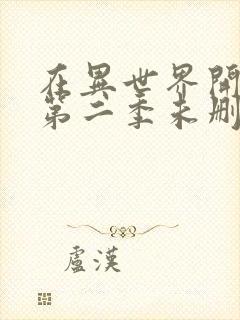 在異世界開
第二季未刪
盧漢